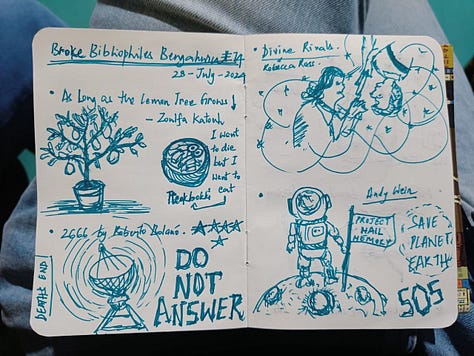 Broke Bibliophiles Bengaluru #74
28 - July - 2024
• As Long as the Lemon Tree Grows
- Zoulfa Katouh
I want
to die
but I
want to
eat
• 2666 by Roberto Bolano.
DEATH'S END
DO
NOT
ANSWER
• Divine Rivals.
Rebecca Ross.
Andy Weir
PROJECT
HAIL
SAVE
PLANET
EARTH
SOS